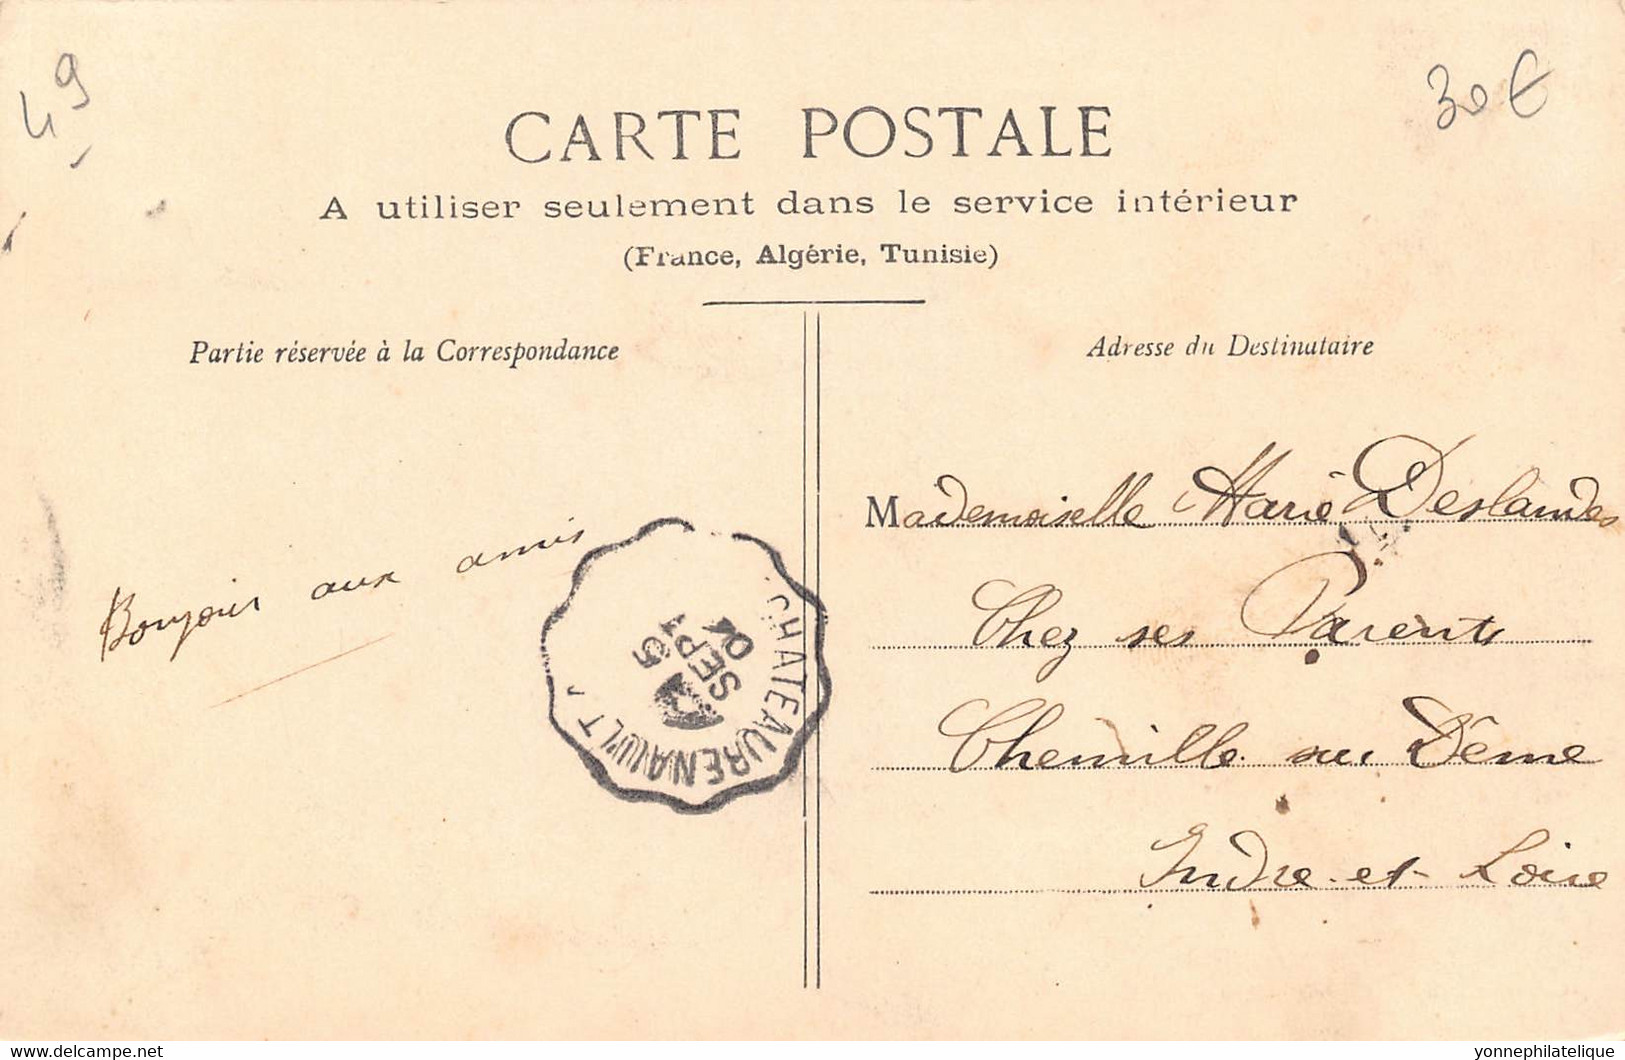 49
30€
CARTE POSTALE
A utiliser seulement dans le service intérieur
(France, Algérie, Tunisie)
Partie réservée à la Correspondance
Adresse du Destinataire
Bonjour aux amis
CHATEAURENAULT
SEP
05
Mademoiselle Marie Deslandes
Chez ses Parents
Chemillé sur Dême
Indre-et-Loire
delcampe.net
yonnephilatelique